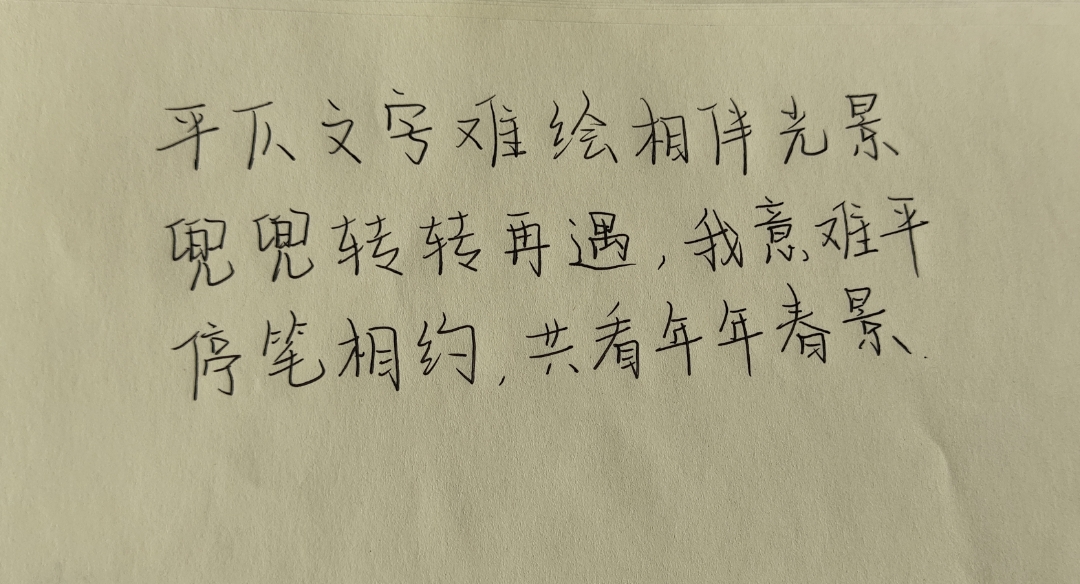 平仄文字难绘相伴光景
兜兜转转再遇,我意难平
停笔相约,共看年年春景.